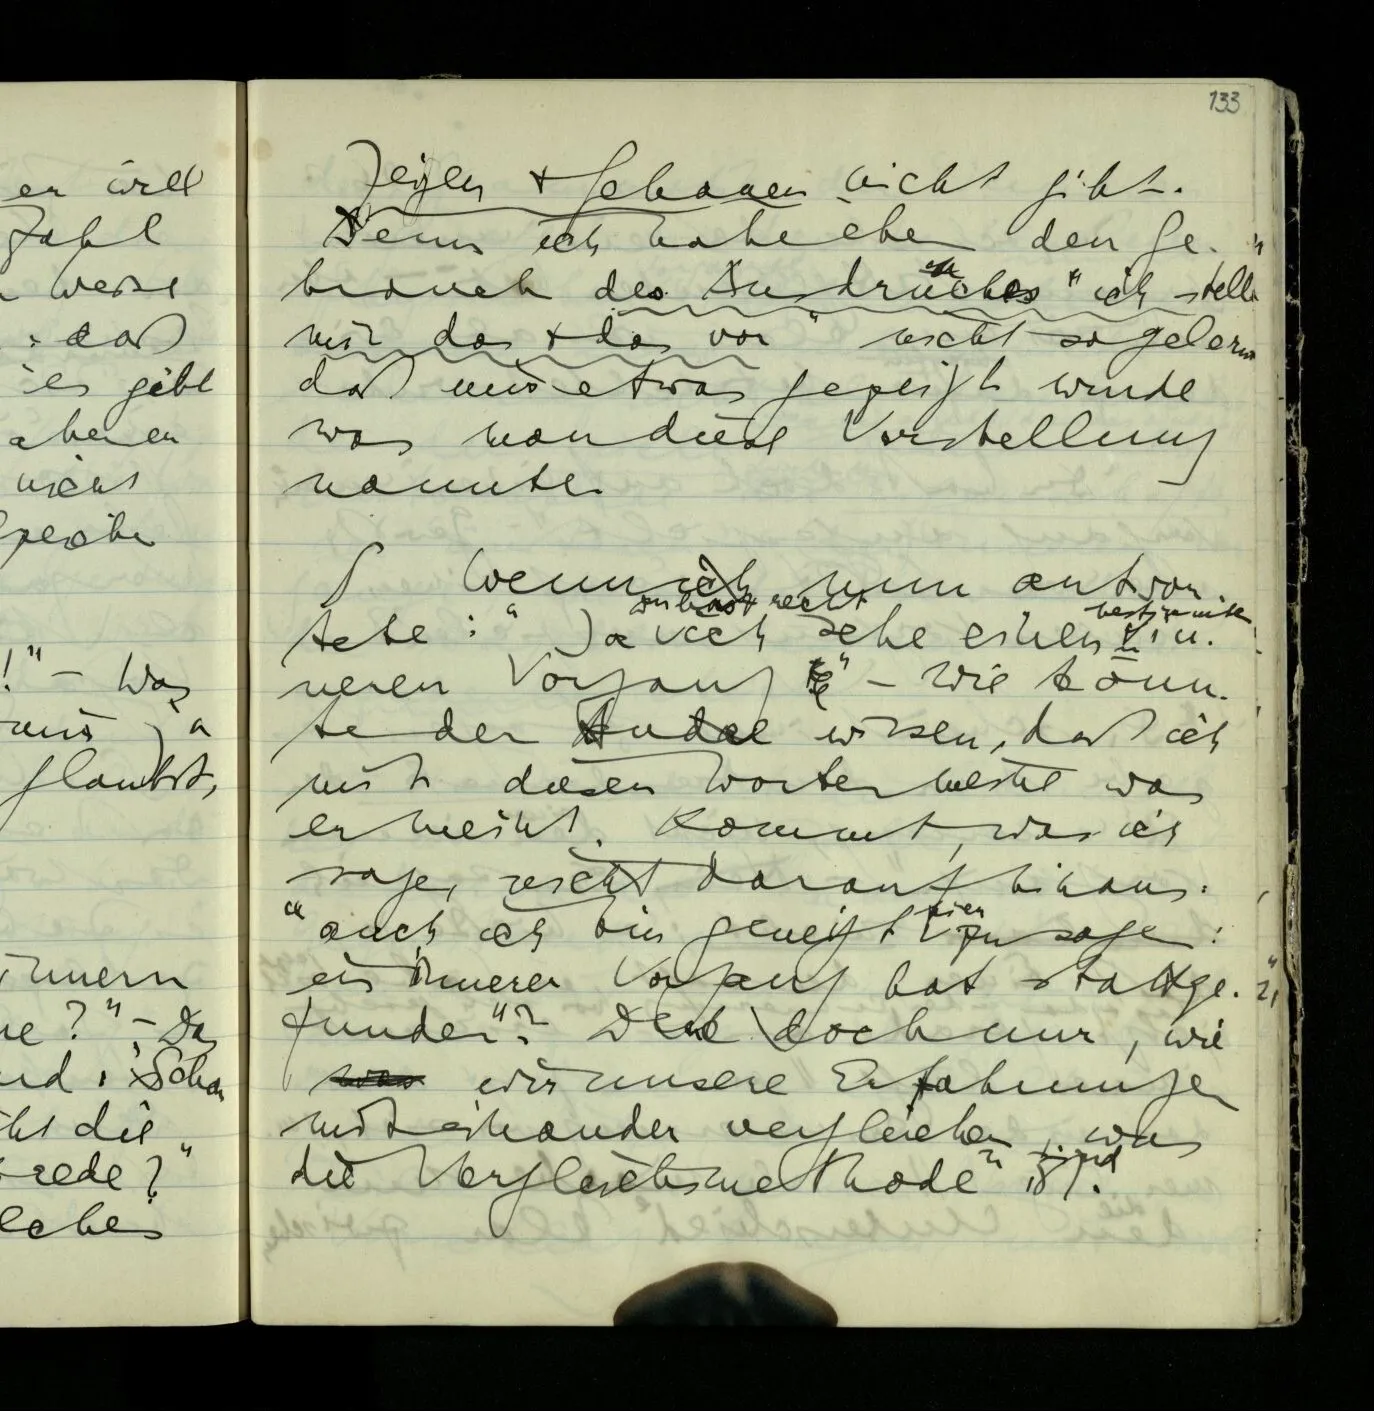 er will
Zahl
weise
: daß
es gibt
aber er
nicht
!" – Was
uns ja
glaubst,
innern
?" – Das
und: Schon
die
rede?"
133
Zeigen + Schauen nicht gibt.
Denn ich habe eben den Ge-
brauch des Ausdruckes "ich stelle
mir das + das vor" nicht so gelernt
daß mir etwas gezeigt wurde
was man diese Vorstellung
nannte.
∫ Wenn ich nun antwor-
du hast recht bestimmten
tete: "Ja ich sehe einen in-
neren Vorgang" – wie könn-
te der Andre wissen, daß ich
mit diesen Worten meine was
er meint. Kommt, was ich
sage, nicht darauf hinaus:
hier
"auch ich bin geneigt zu sagen:
ein innerer Vorgang hat stattge-
funden"? Denk doch nur, wie
was wir unsere Erfahrungen
miteinander vergleichen, was
sind
die Vergleichsmethode ist!